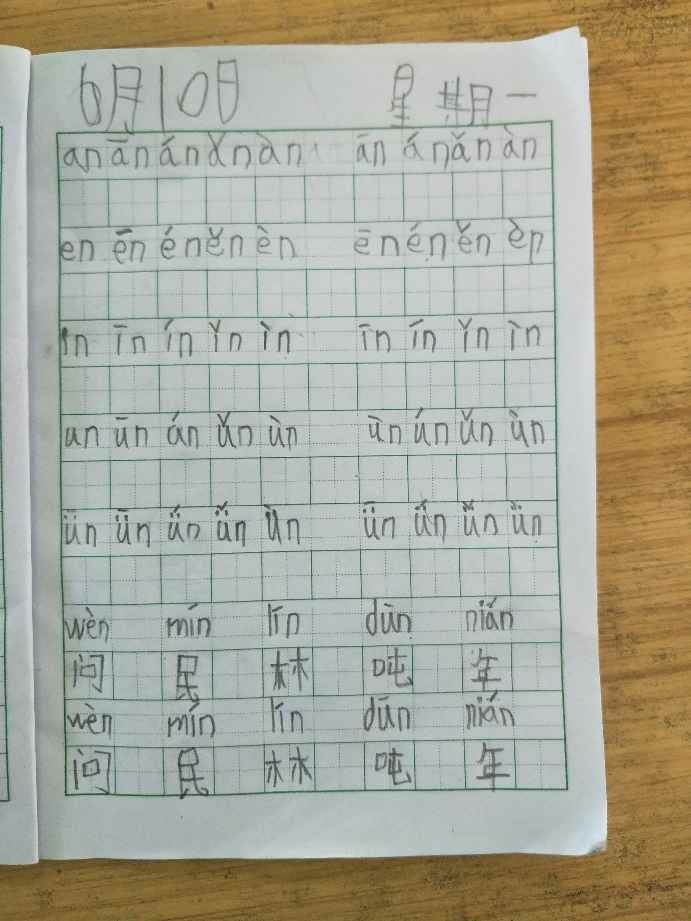 6月10日 星期一
an ān án ǎn àn ān án ǎn àn
en ēn én ěn èn ēn én ěn èn
in īn ín ǐn ìn īn ín ǐn ìn
un ūn ún ǔn ùn ūn ún ǔn ùn
ün ǖn ǘn ǚn ǜn ǖn ǘn ǚn ǜn
wèn mín lín dūn nián
问 民 林 吨 年
wèn mín lín dūn nián
问 民 林 吨 年